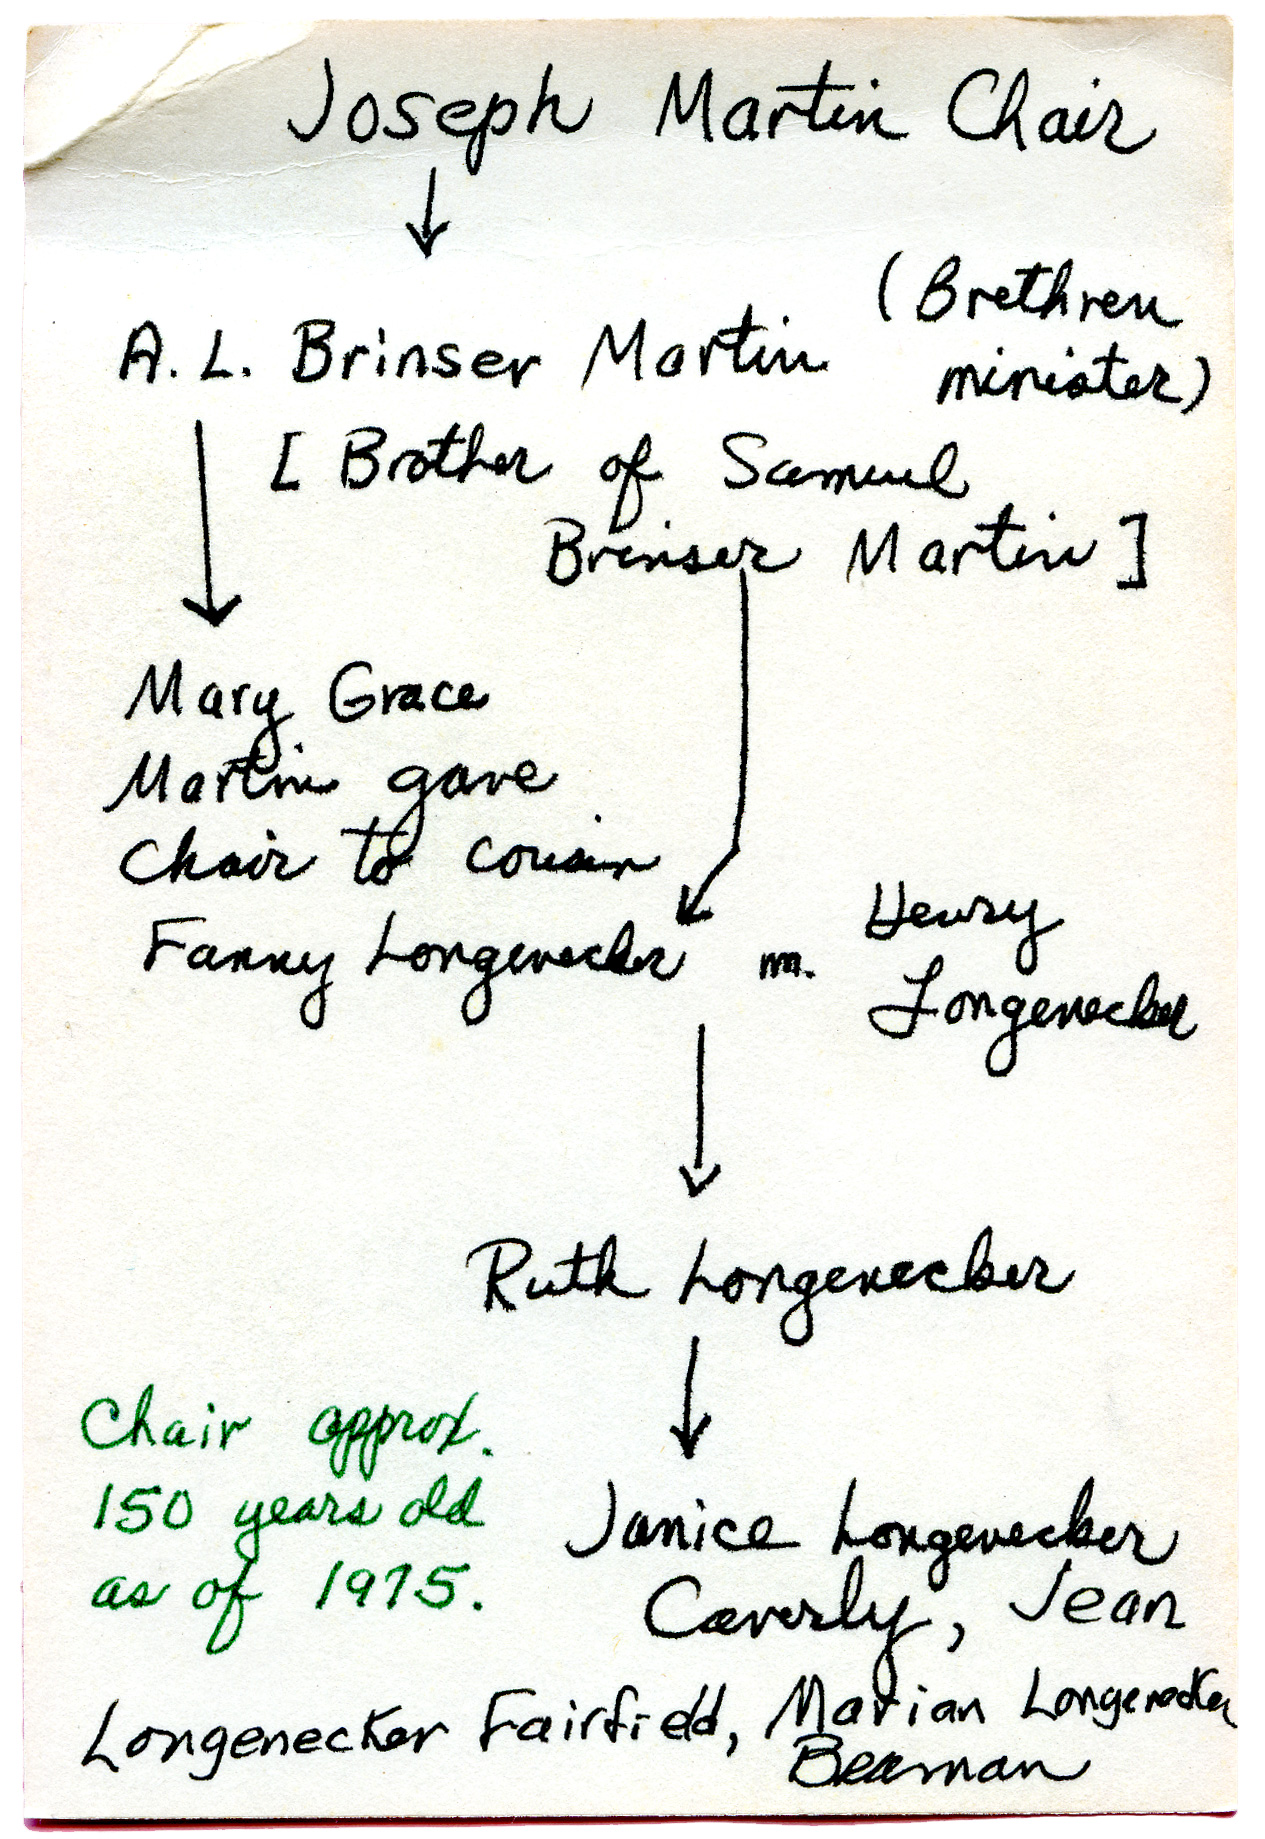 Joseph Martin Chair
A. L. Brinser Martin (Brethren
minister)
[Brother of Samuel
Brinser Martin]
Mary Grace
Martin gave
chair to cousin
Fanny Longenecker m. Henry
Longenecker
Ruth Longenecker
Chair approx.
150 years old
as of 1975.
Janice Longenecker
Caverly, Jean
Longenecker Fairfield, Marian Longenecker
Beaman